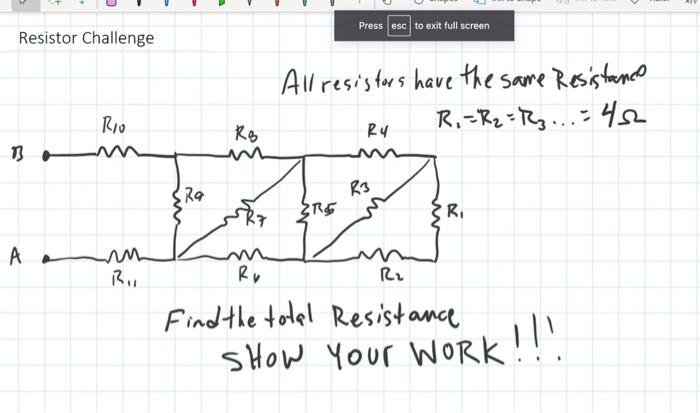 Press esc to exit full screen
Resistor Challenge
All resistors have the same Resistance
R₁=R₂=R₃...=4Ω
R10 R8 R4
B
R9 R7 R5 R3 R1
A
R11 R6 R2
Find the total Resistance
SHOW YOUR WORK!!!